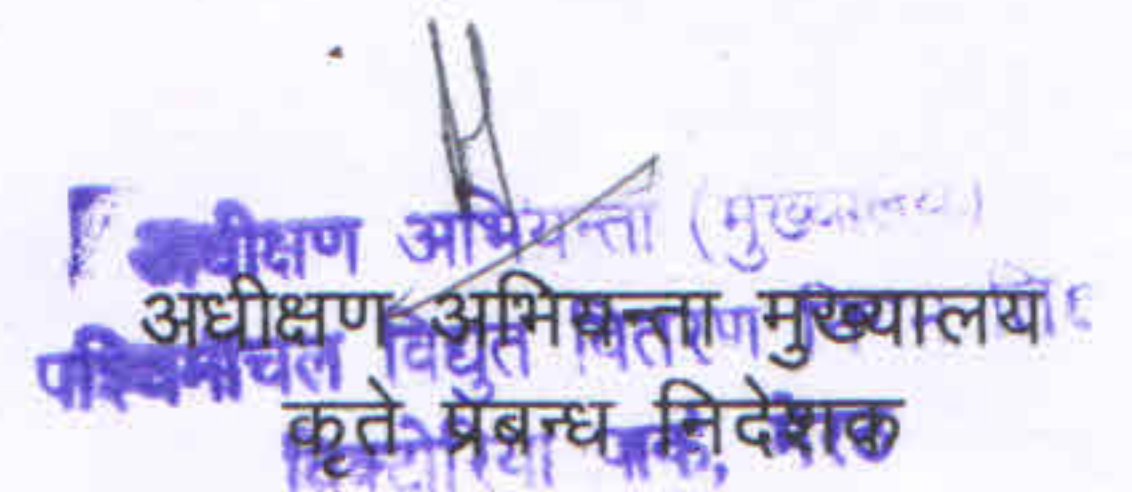 अधीक्षण अभियन्ता (मुख्यालय)
अधीक्षण अभियन्ता मुख्यालय
पश्चिमांचल विद्युत वितरण
कृते प्रबन्ध निदेशक
विक्टोरिया पार्क, मेरठ